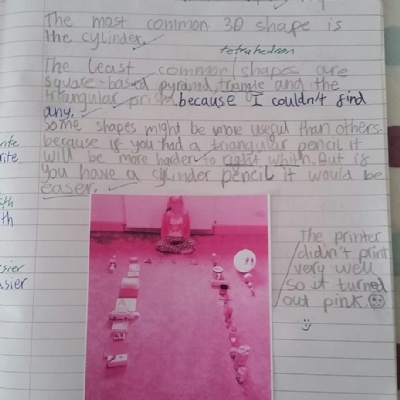 The most common 3D shape is
the cylinder.
tetrahedron
The least common shapes are
square-based pyramid, triangle and the
triangular prism because I couldn't find
any.
Some shapes might be more useful than others.
because if you had a triangular pencil it
will be more harder to right which. But if
You have a cylinder pencil it would be
easer.
rite
rite
th
asier
The printer
didn't print
very well
so it turned
out pink